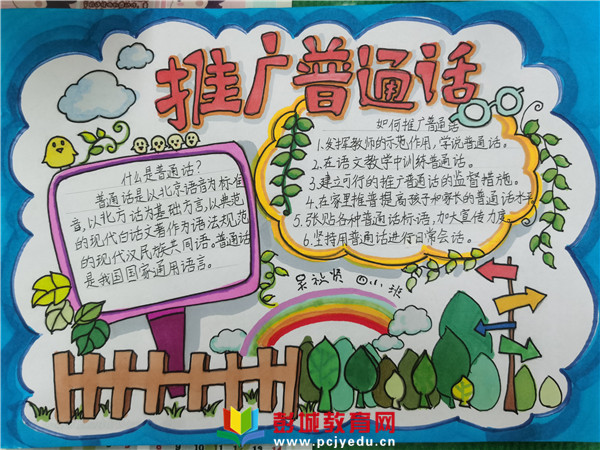 推广普通话
什么是普通话?
普通话是以北京语音为标准
音,以北方话为基础方言,以典范
的现代白话文著作为语法规范
的现代汉民族共同语。普通话
是我国国家通用语言。
如何推广普通话
1.发挥教师的示范作用,学说普通话。
2.在语文教学中训练普通话。
3.建立可行的推广普通话的监督措施。
4.在家里推普提高孩子和家长的普通话水平
5.张贴各种普通话标语,加大宣传力度。
6.坚持用普通话进行日常会话。
四小班
彭城教育网
www.pcjyedu.cn